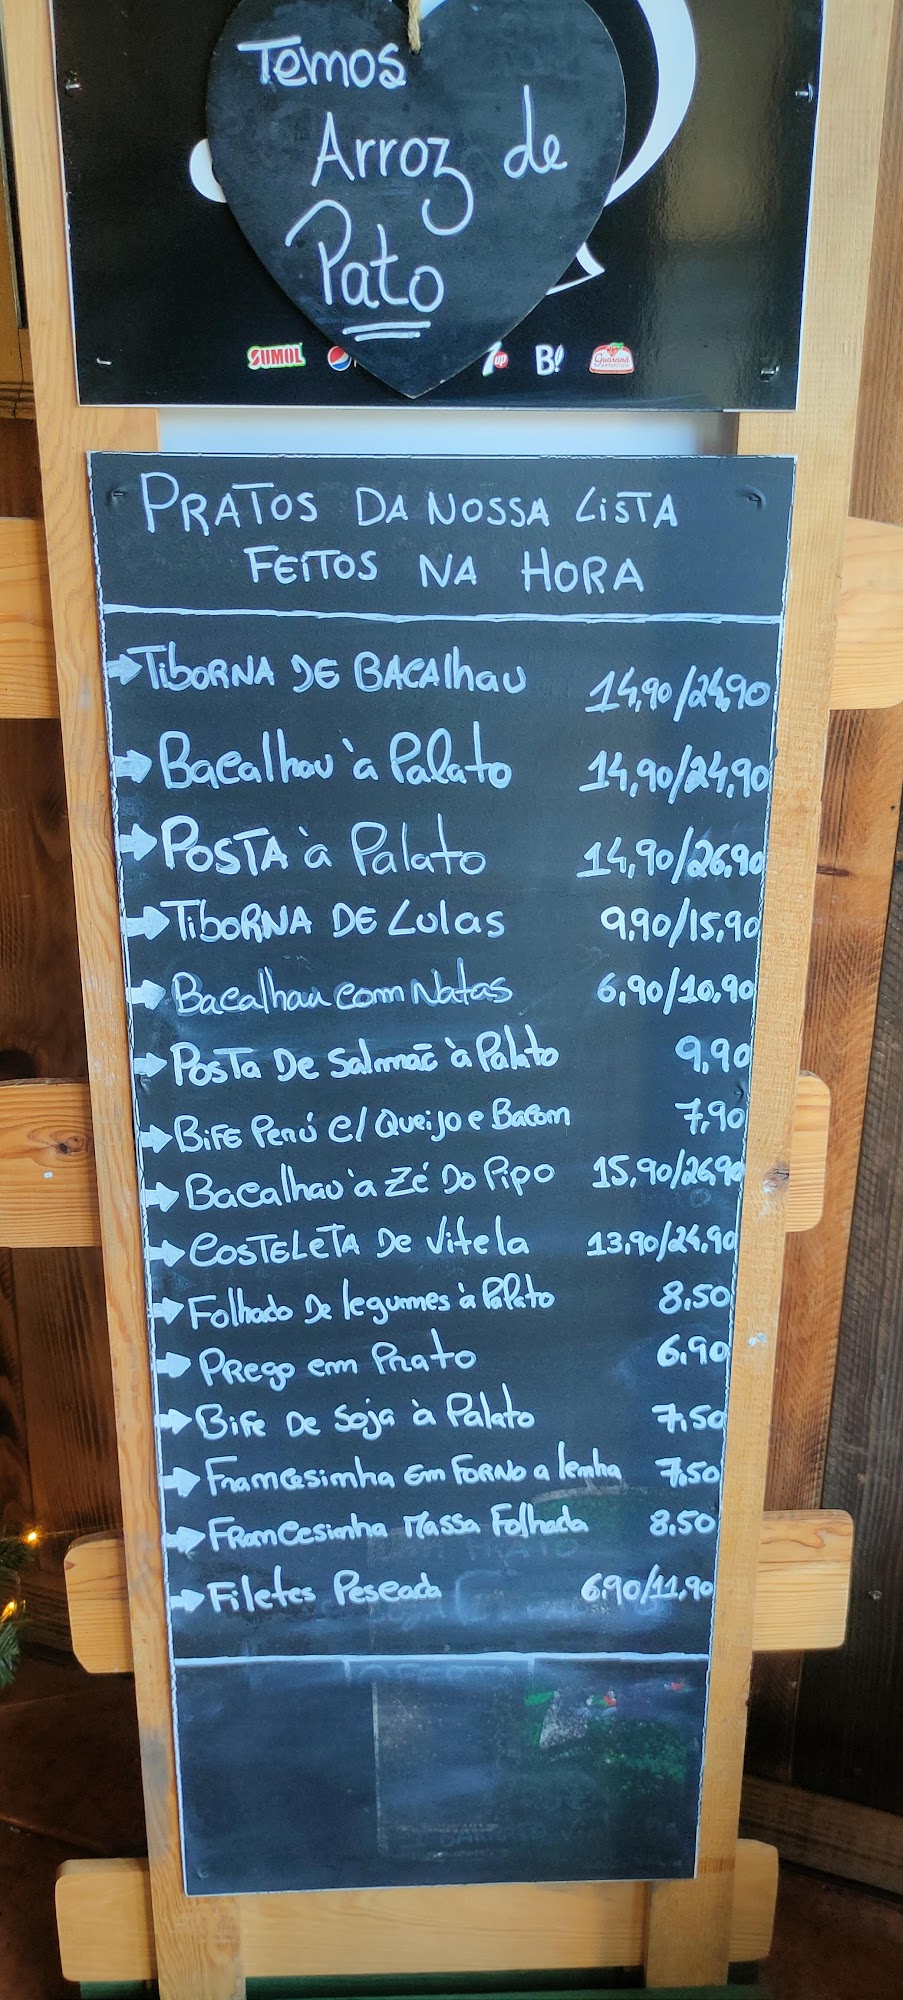 Temos
Arroz de
Pato
SUMOL
7up
B!
Guaraná
PRATOS DA NOSSA LISTA
FEITOS NA HORA
TIBORNA DE BACALhau 14,90/24,90
Bacalhau à Palato 14,90/24,90
POSTA à Palato 14,90/26,90
TIBORNA DE Lulas 9,90/15,90
Bacalhau com Natas 6,90/10,90
Posta De Salmão à Palato 9,90
Bife Perú c/ Queijo e Bacom 7,90
Bacalhau à Zé Do Pipo 15,90/26,90
COSTELETA De Vitela 13,90/24,90
Folhado De legumes à Palato 8,50
Prego em Prato 6,90
Bife De Soja à Palato 7,50
Francesinha Em FORNO a lenha 7,50
Francesinha Massa Folhada 8,50
Filetes Pescada 6,90/11,90